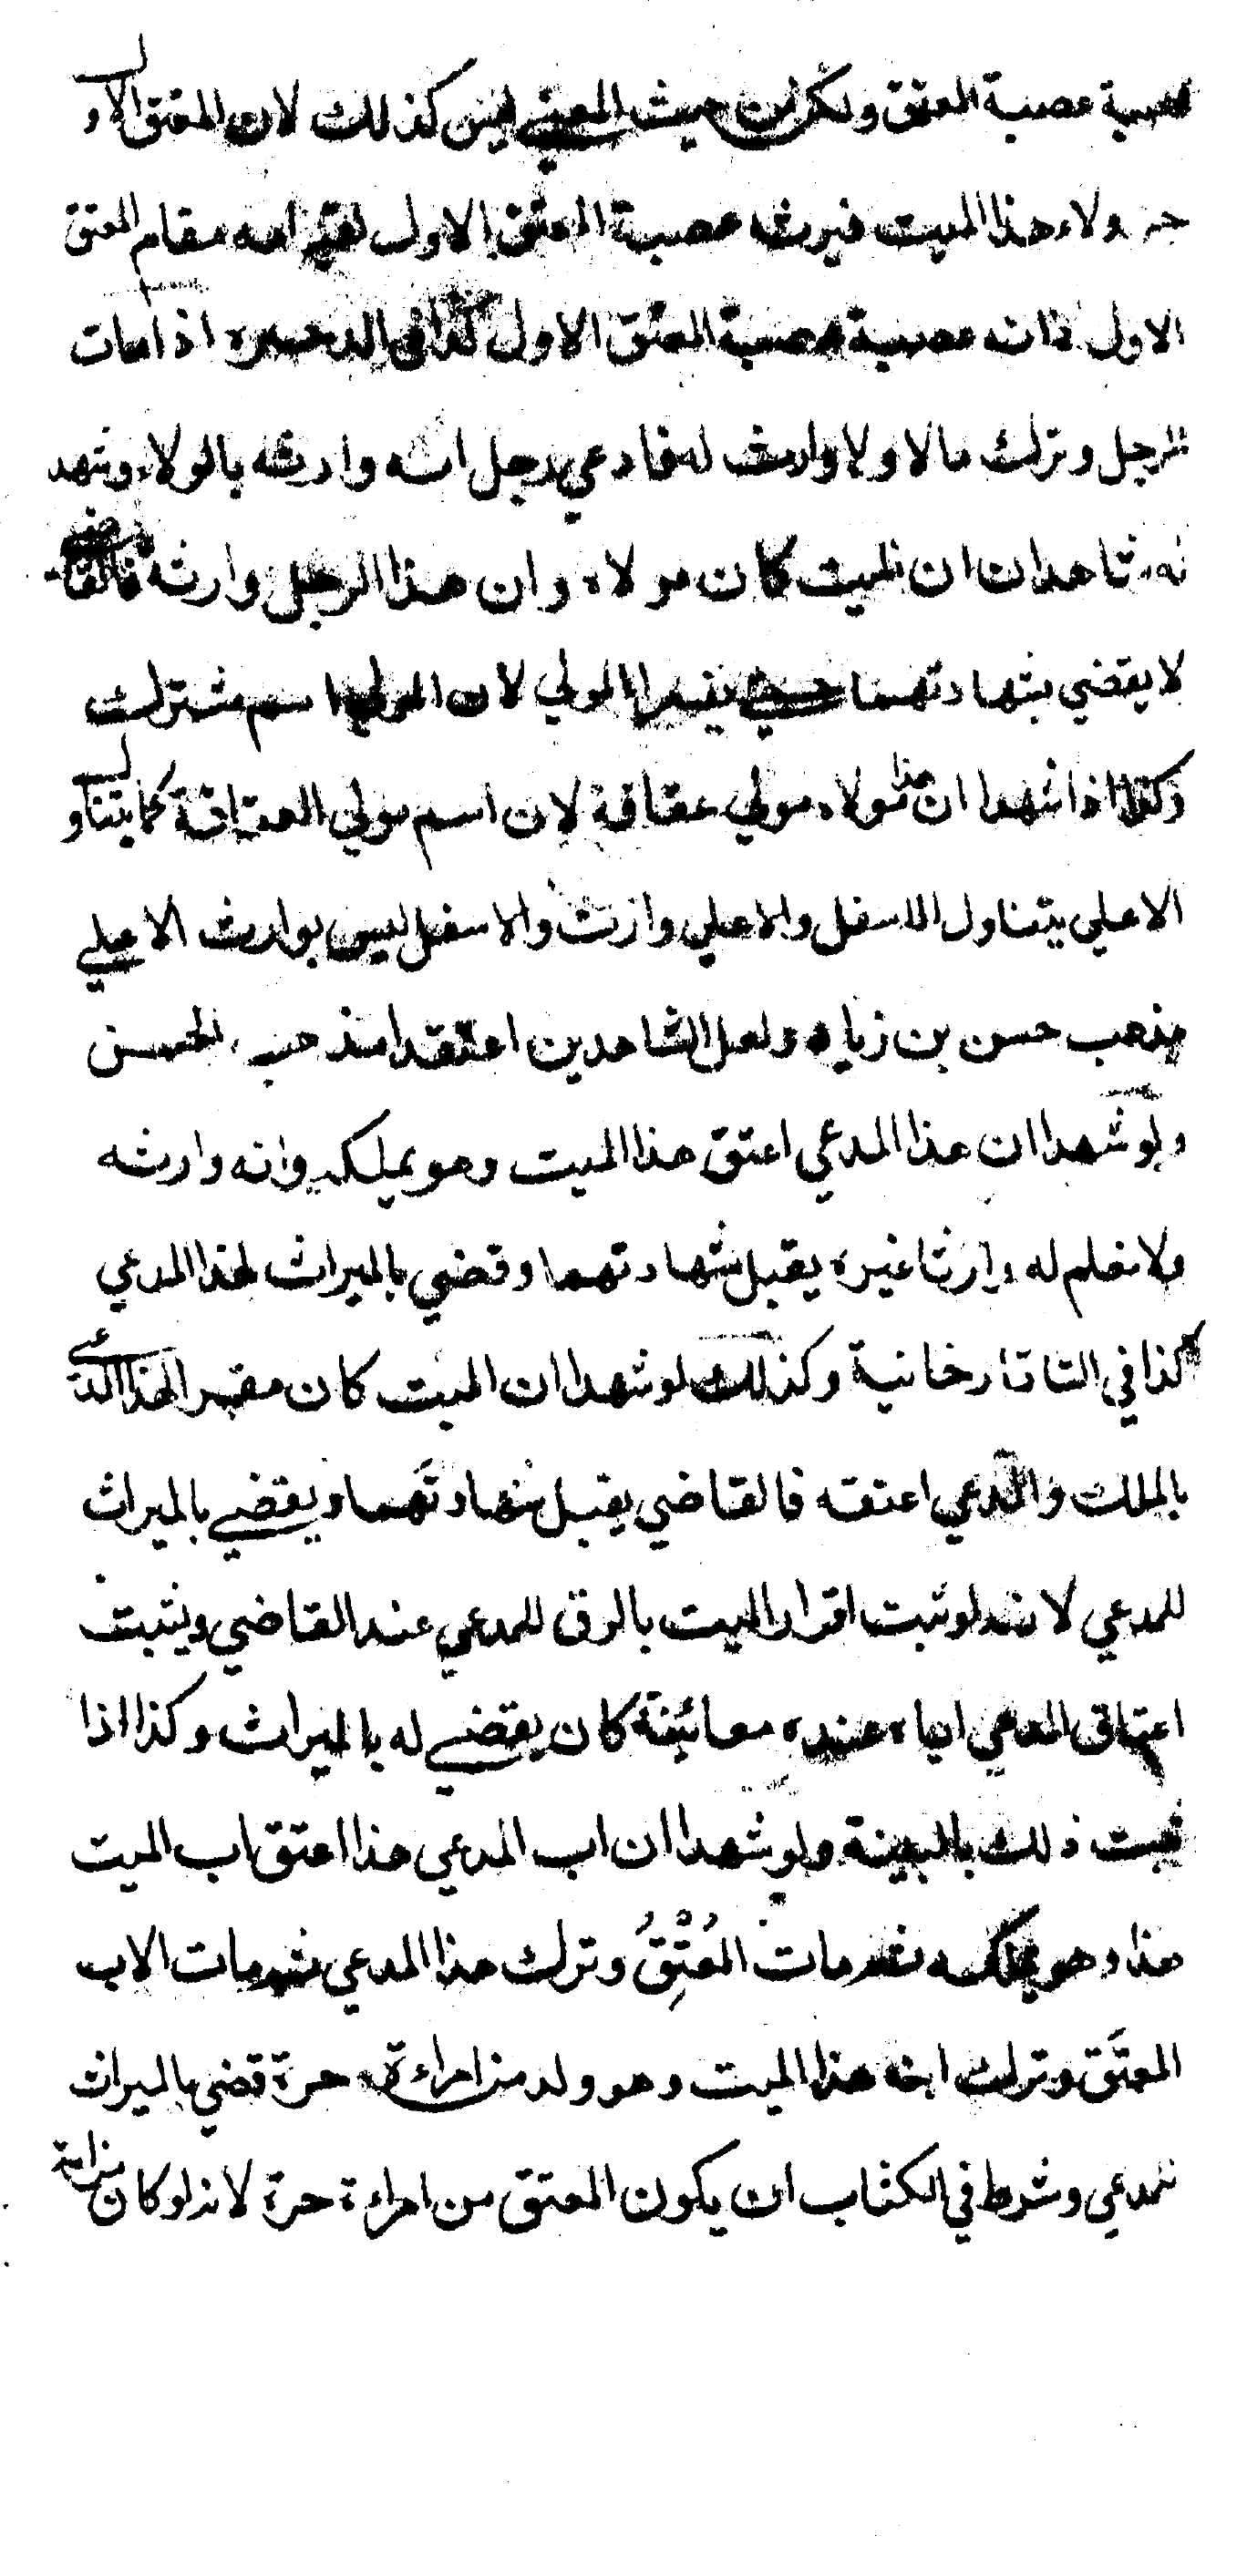 عصبة عصبة المعتق ولكن من حيث المعنى ليس كذلك لان المعتق الاول
جر ولاء هذا الميت فيرث عصبة المعتق الاول لقيامه مقام المعتق
الاول فانه عصبة عصبة المعتق الاول كذا في الذخيرة اذا مات
الرجل وترك مالا ولا وارث له فادعي رجل انه وارثه بالولاء وشهد
له شاهدان ان الميت كان مولاه وان هذا الرجل وارثه فالقاضي
لا يقضي بشهادتهما حتي يفسرا المولي لان المولي اسم مشترك
وكذا اذا شهدا ان هذا مولاه مولي عتاقة لان اسم مولي العتاقة كما يتناول
الاعلي يتناول الاسفل والاعلي وارث والاسفل ليس بوارث الاعلي
مذهب حسن بن زياد ولعل الشاهدين اعتقدا مذهب الحسن
ولو شهدا ان هذا المدعي اعتق هذا الميت وهو يملكه وانه وارثه
ولا نعلم له وارثا غيره يقبل شهادتهما وقضي بالميراث لهذا المدعي
كذا في التاتارخانية وكذلك لو شهدا ان الميت كان مقرا لهذا المدعي
بالملك والمدعي اعتقه فالقاضي يقبل شهادتهما ويقضي بالميراث
للمدعي لانه لو ثبت اقرار الميت بالرق للمدعي عند القاضي ويثبت
اعتاق المدعي اياه عنده معائنة كان يقضي له بالميراث وكذا اذا
ثبت ذلك بالبينة ولو شهدا ان اب المدعي هذا اعتق اب الميت
هذا وهو يملكه ثم مات المُعْتِقُ وترك هذا المدعي ثم مات الاب
المعتَق وترك ابنه هذا الميت وهو ولد من امراءة حرة قضي بالميراث
للمدعي وشرط في الكتاب ان يكون المعتق من امراءة حرة لانه لو كان من امة